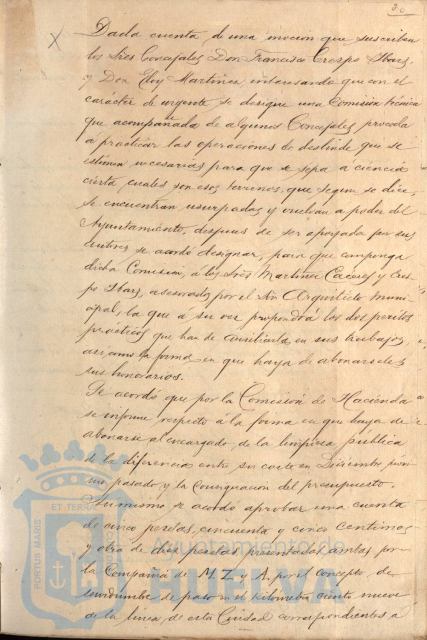 30
X
Dada cuenta de una mocion que suscriben
los Sres Concejales Don Francisco Crespo Ibars,
y Don Eloy Martinez interesando que con el
carácter de urgente se designe una Comisión técnica
que acompañada de algunos Concejales proceda
á practicar las operaciones de deslinde que se
estimen necesarias para que se sepa á ciencia
cierta, cuales son esos terrenos, que segun se dice,
se encuentran usurpados y vuelvan a poder del
Ayuntamiento, despues de ser apoyada por sus
autores se acordó designar, para que componga
dicha Comisión, á los Sres Martinez Caceres y Cres-
po Ibars, asesorados por el Sr Arquitecto muni-
cipal, la que á su vez propondrá los dos peritos
prácticos que han de auxiliarla en sus trabajos,
asi como la forma en que haya de abonarseles
sus honorarios.
Se acordó que por la Comisión de Hacienda
se informe respecto á la forma en que haya de
abonarse al encargado de la limpieza publica
de la diferencia entre su coste en Diciembre proxi-
mo pasado y la Consignación del presupuesto.
Asimismo se acordó aprobar una cuenta
de cinco pesetas, cincuenta y cinco centimos
y otra de diez pesetas presentadas ambas por
la Compañia de M. Z. y A. por el concepto de
servidumbre de paso en el kilometro ciento nueve
de la linea, de esta Ciudad correspondientes á
PORTUS MARIS
ET TERRAE
Ayuntamiento de
HUELVA